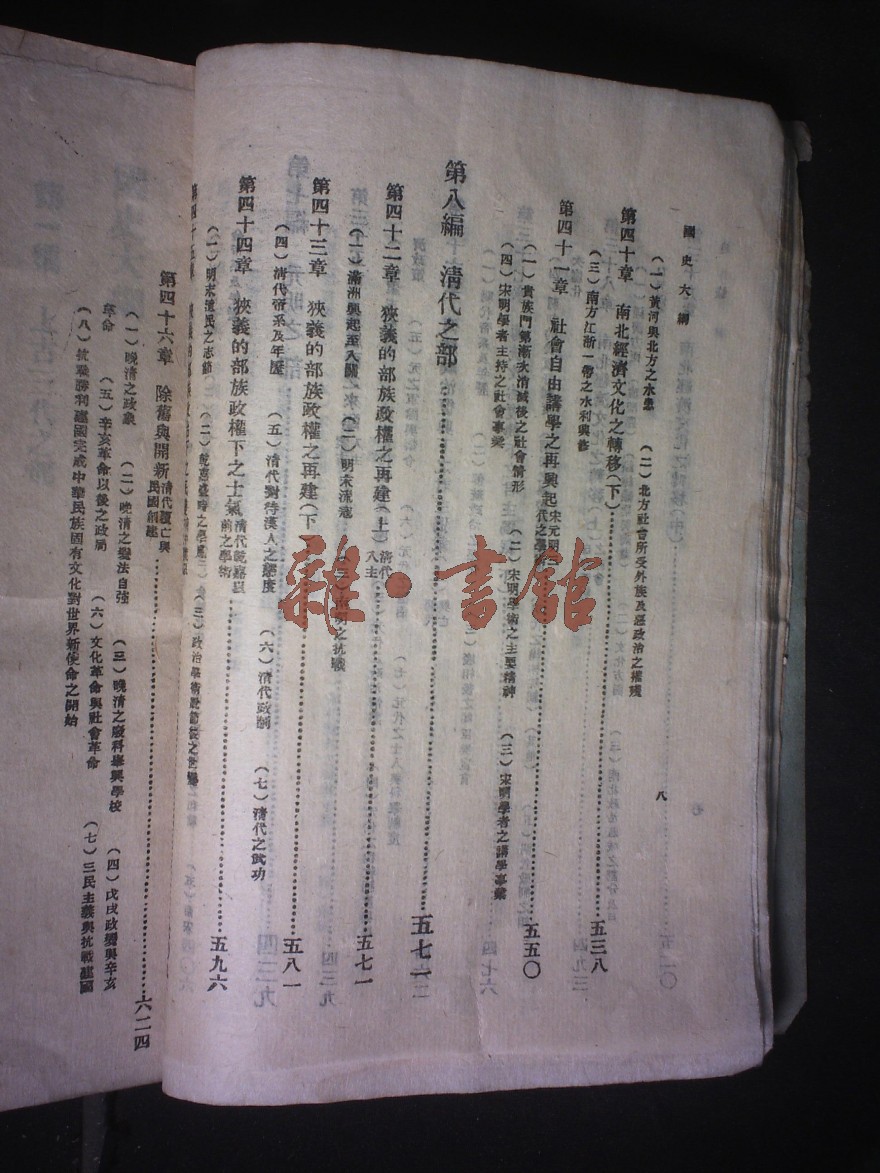 國史大綱
(一)黃河與北方之水患 (二)北方社會所受外族及惡政治之摧殘
第四十章 南北經濟文化之轉移(下)……五三八
(三)南方江浙一帶之水利興修
八
第四十一章 社會自由講學之再興起 宋元明……五五〇
(一)貴族門第漸次消滅後之社會情形 (二)宋明學術之主要精神 (三)宋明學者之講學事業
(四)宋明學者主持之社會事業
第八編 清代之部……五七一
第四十二章 狹義的部族政權之再建(上) 清代入主……五七一
(一)滿洲興起至入關 (二)明末流寇 (三)南明之抗戰
第四十三章 狹義的部族政權之再建(下)……五八一
(四)清代帝系及年歷 (五)清代對待漢人之態度 (六)清代政制 (七)清代之武功
第四十四章 狹義的部族政權下之士氣 清代乾嘉以前之學術……五九六
(一)明末遺民之志節 (二)乾嘉盛時之學 (三)政治學術
第四十六章 除舊與開新 清代覆亡與民國創建……六二四
(一)晚清之政象 (二)晚清之變法自強 (三)晚清之廢科舉興學校 (四)戊戌政變與辛亥
革命 (五)辛亥革命以後之政局 (六)文化革命與社會革命 (七)三民主義與抗戰建國
(八)抗戰勝利建國完成中華民族固有文化對世界新使命之開始
雜·書館